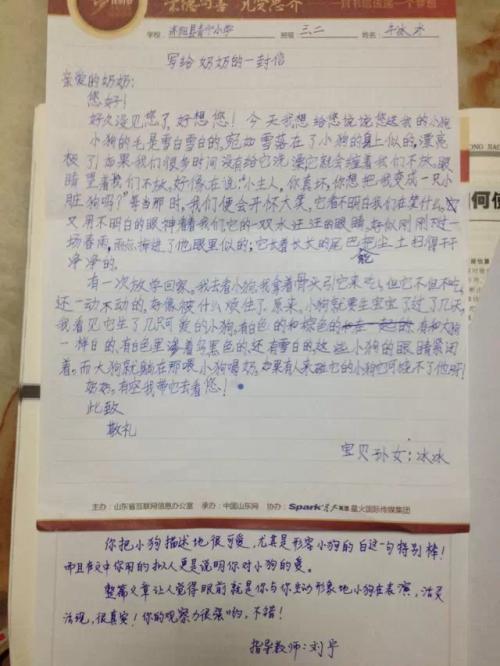 学校: 沭阳县青少小学 班级 三、二 姓名
写给奶奶的一封信
亲爱的奶奶:
您好!
好久没见您了,好想您!今天我想给您说说您送我的小狗
小狗的毛是雪白雪白的,宛如雪落在了小狗的身上似的,漂亮
极了,如果我们很多时间没有给它洗澡它就会缠着我们不放,眼
睛望着我们不放,好像在说:“小主人,你真坏,你想把我变成一只小
脏狗吗?”每当那时,我们便会开怀大笑,它看不明白我们在笑什么,
又用不明白的眼神看着我们它的一双水汪汪的眼睛,好似刚刚下过一
场春雨,雨点掉进了他眼里似的;它长着长长的尾巴能把尘土扫得干干
净净的。
有一次放学回家。我去看小狗,我拿着骨头引它来吃,但它不但不吃,
还一动不动的,好像被什么烦住了。原来,小狗就要生宝宝了过了几天,
我看见它生了几只可爱的小狗,有白色的和棕色的,有和大狗
一样白的,有白色里渗着乌黑色的,还有雪白的,这些小狗的眼睛紧闭
着。而大狗就躺在那喂小狗喝奶,如果有人来碰它的小狗它可饶不了他呀!
奶奶,有空我带它去看您!
此致
敬礼
宝贝孙女:冰冰
主办:山东省互联网信息办公室 承办:中国山东网 协办:Spark 星火英语 星火国际传媒集团
你把小狗描述地很可爱,尤其是形容小狗的白这一句特别棒!
而且在文中你用的拟人更是说明你对小狗的爱。
整篇文章让人觉得眼前就是你与你生动形象地小狗在表演,活灵
活现,很真实!你的观察力很强哟,不错!
指导教师:刘宇